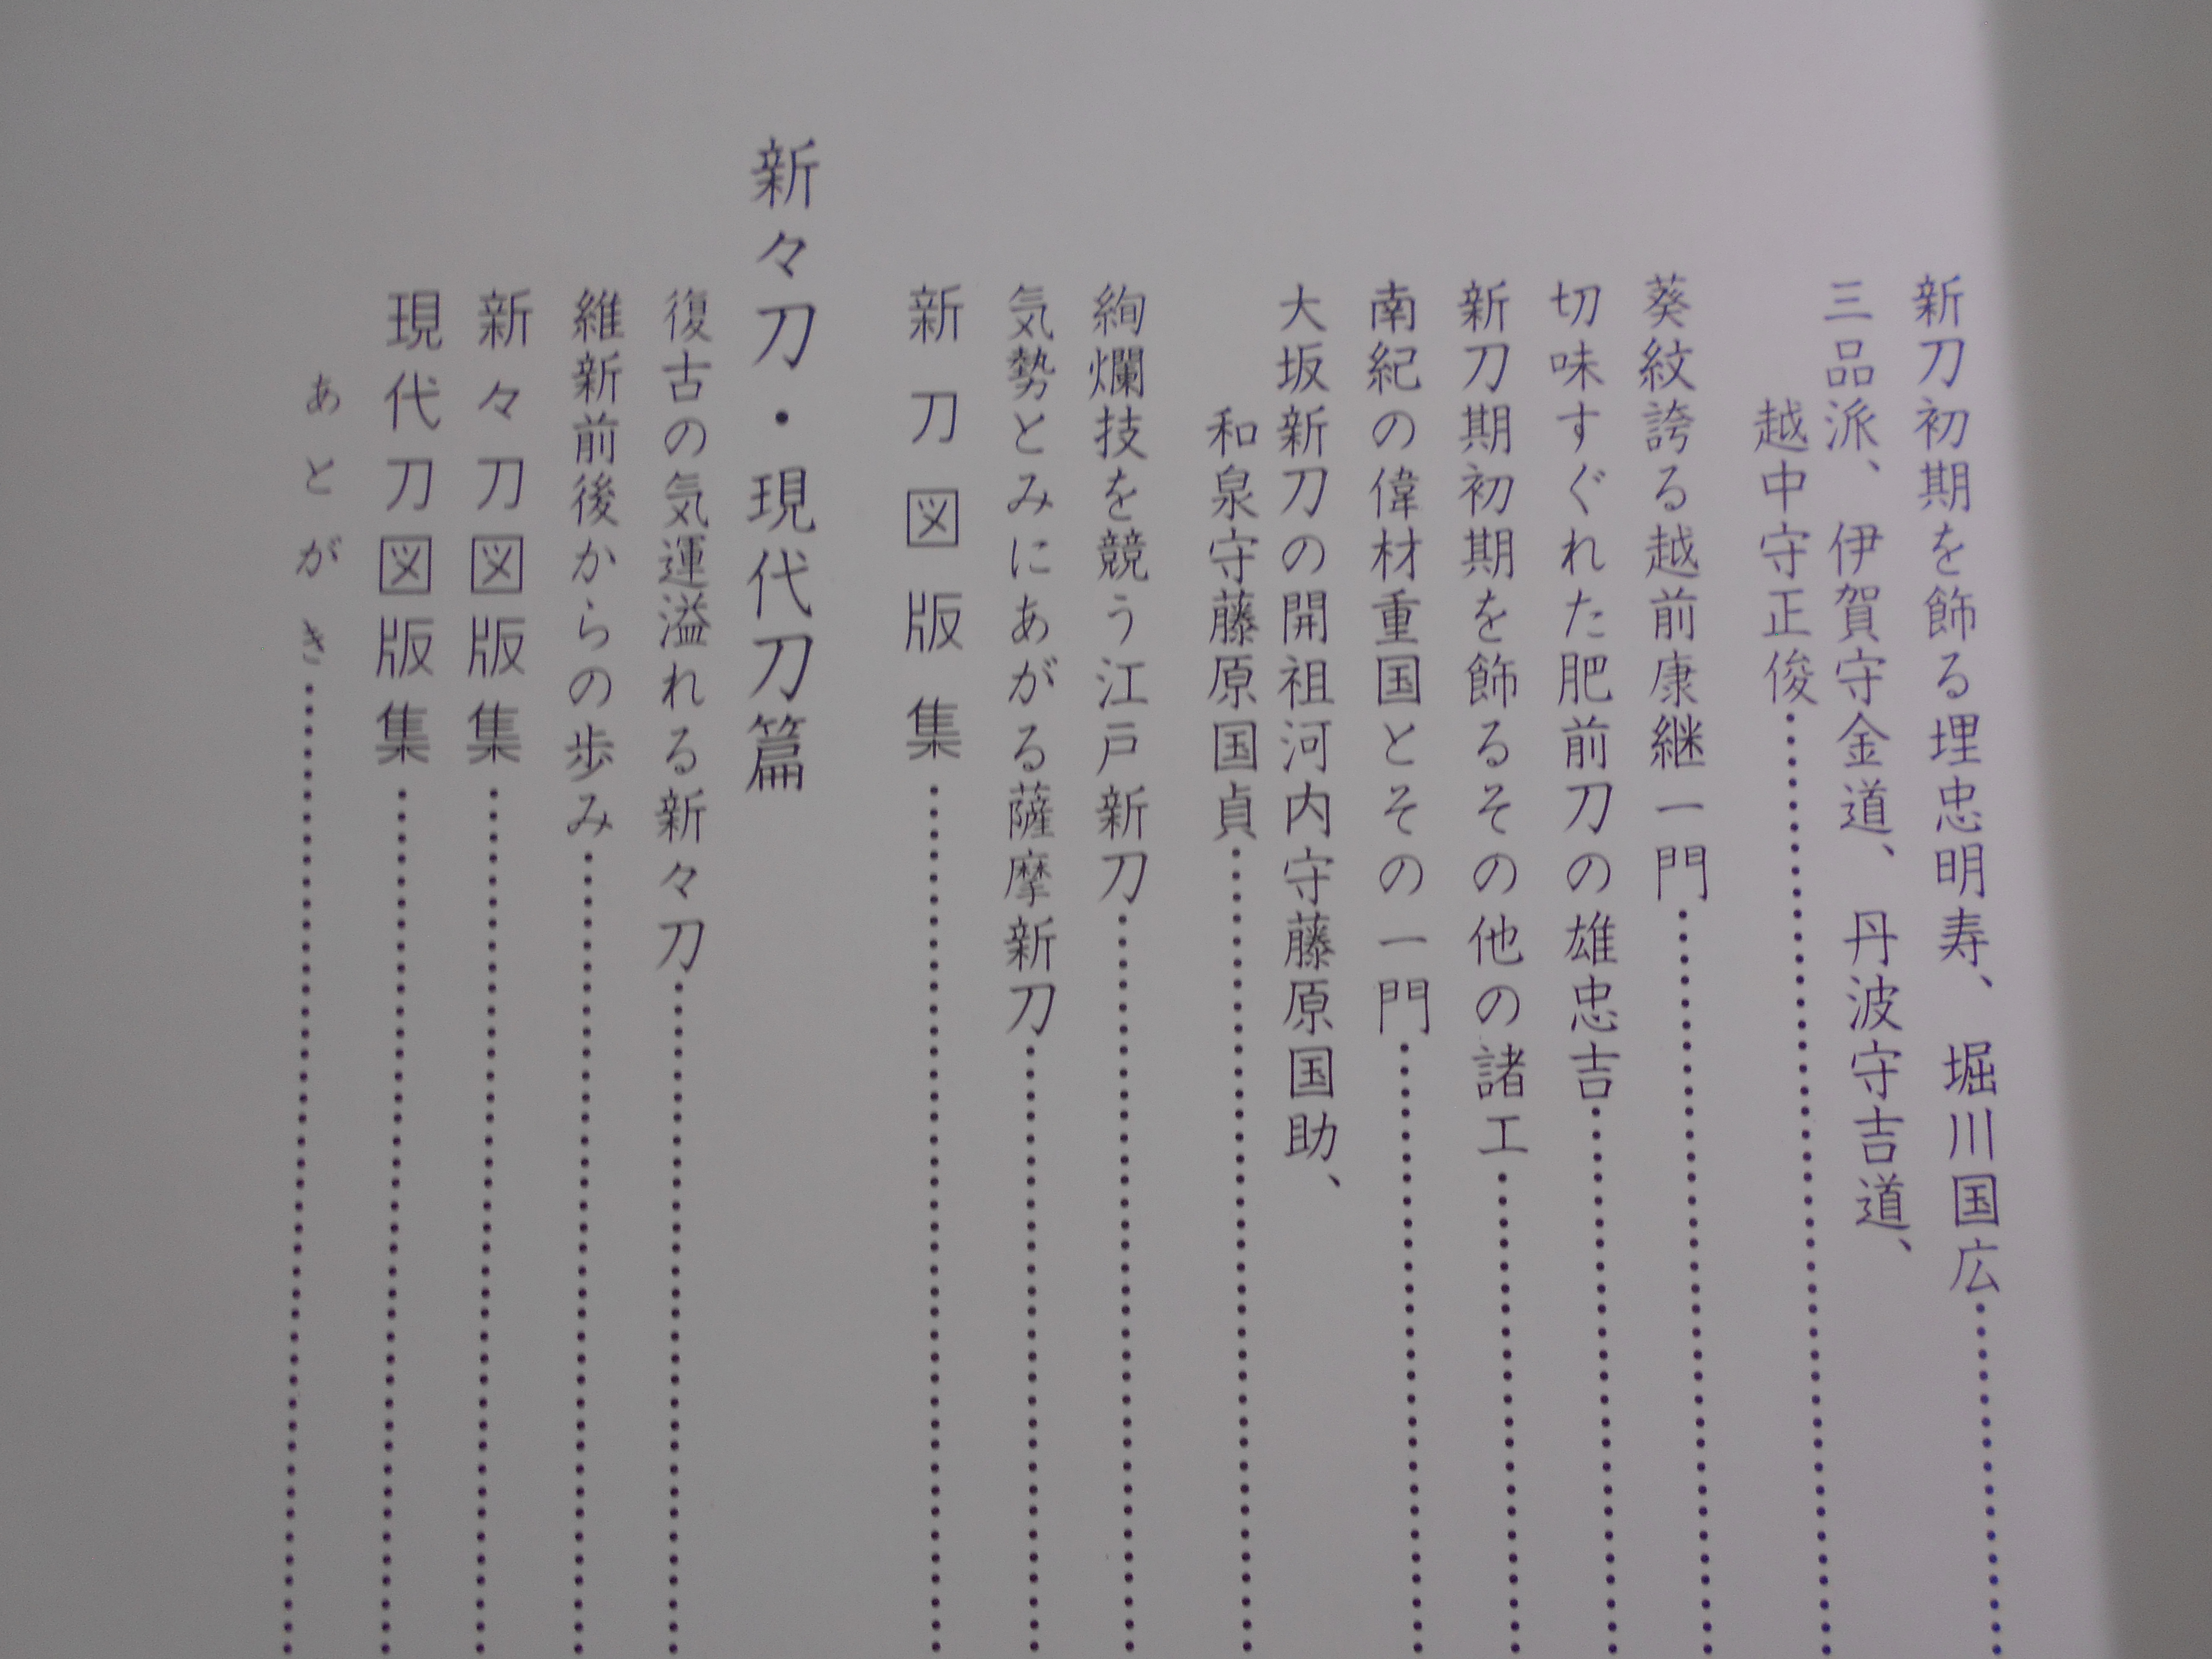 新刀初期を飾る埋忠明寿、堀川国広……………
三品派、伊賀守金道、丹波守吉道、
越中守正俊……………
葵紋誇る越前康継一門……………
切味すぐれた肥前刀の雄忠吉……………
新刀期初期を飾るその他の諸工……………
南紀の偉材重国とその一門……………
大坂新刀の開祖河内守藤原国助、
和泉守藤原国貞……………
絢爛技を競う江戸新刀……………
気勢とみにあがる薩摩新刀……………
新刀図版集……………
新々刀・現代刀篇
復古の気運溢れる新々刀……………
維新前後からの歩み……………
新々刀図版集……………
現代刀図版集……………
あとがき……………